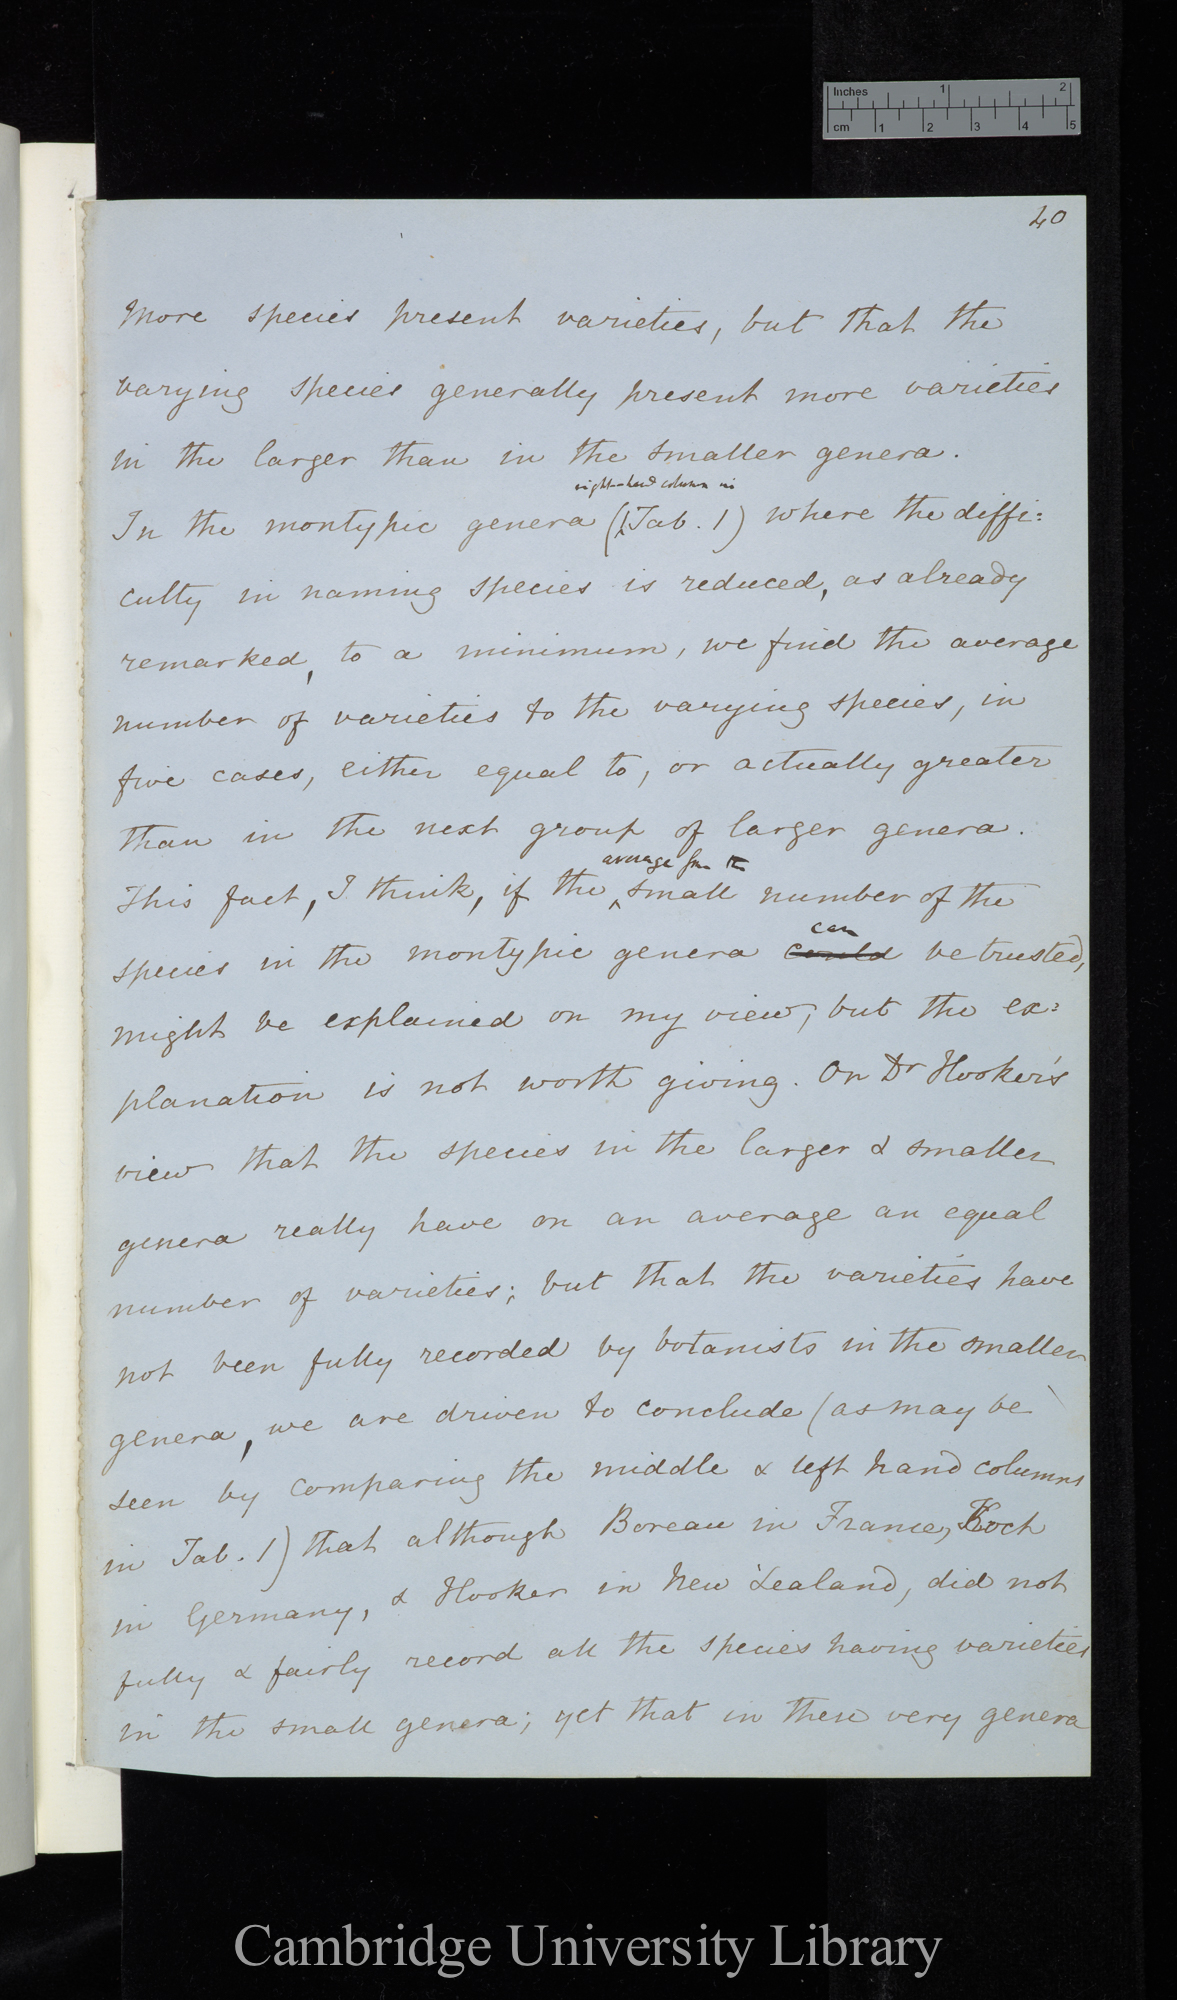 Inches 1 2
cm 1 2 3 4 5
40
More species present varieties, but that the
varying species generally present more varieties
in the larger than in the smaller genera.
right-hand column in
In the montypic genera (Tab. 1) where the diffi:
culty in naming species is reduced, as already
remarked, to a minimum, we find the average
number of varieties to the varying species, in
five cases, either equal to, or actually greater
than in the next group of larger genera.
average from the
This fact, I think, if the small number of the
can
species in the montypic genera could be trusted,
might be explained on my view; but the ex:
planation is not worth giving. On Dr Hooker's
view that the species in the larger & smaller
genera really have on an average an equal
number of varieties; but that the varieties have
not been fully recorded by botanists in the smaller
genera, we are driven to conclude (as may be
seen by comparing the middle & left hand columns
in Tab. 1) that although Boreau in France, Koch
in Germany, & Hooker in New Zealand, did not
fully & fairly record all the species having varieties
in the small genera; yet that in these very genera
Cambridge University Library